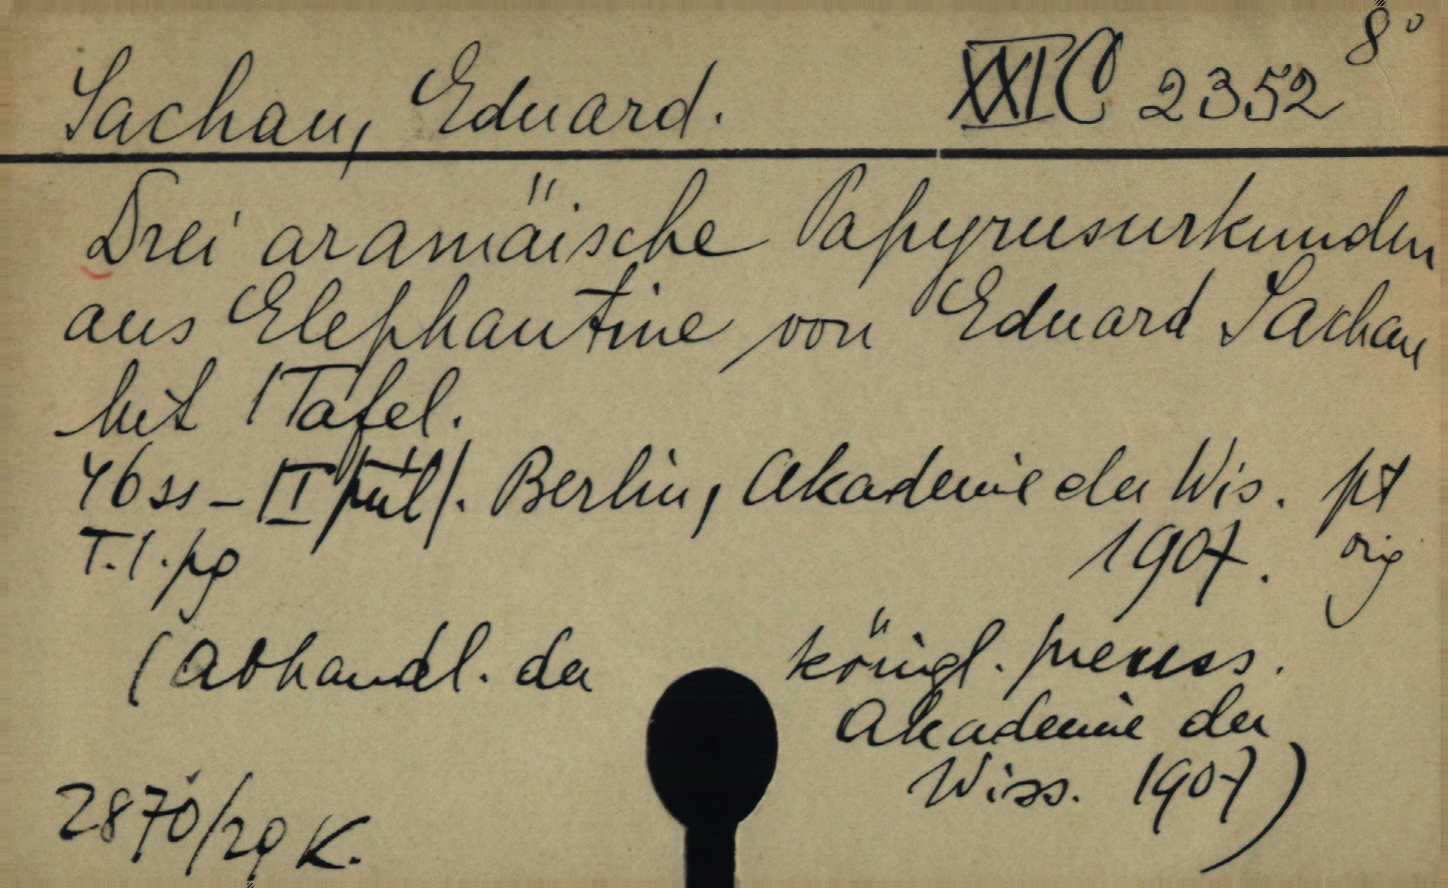 Sachau, Eduard. XXI C 2352 8°
Drei aramäische Papyrusurkunden
aus Elephantine von Eduard Sachau
Mit 1 Tafel.
46 ss – II Berlin, Akademie der Wis. pt
T. 1. pg 1907. orig
(Abhandl. der königl. preuss.
Akademie der
Wiss. 1907)
2870/29 K.